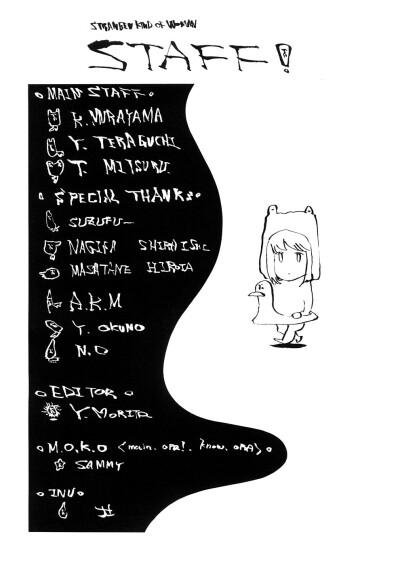 STRANGER KIND OF WOMAN
STAFF!
MAIN STAFF
K. MURAYAMA
Y. TERAGUCHI
T. MITSURU
SPECIAL THANKS
SUZUFU—
NAGISA
MASATANE HIROTA
A.K.M
Y. OKUNO
N.O
EDITOR
Y. MORITA
M.O.K.O <main. OPA!. know. OPA>
SAMMY
INU